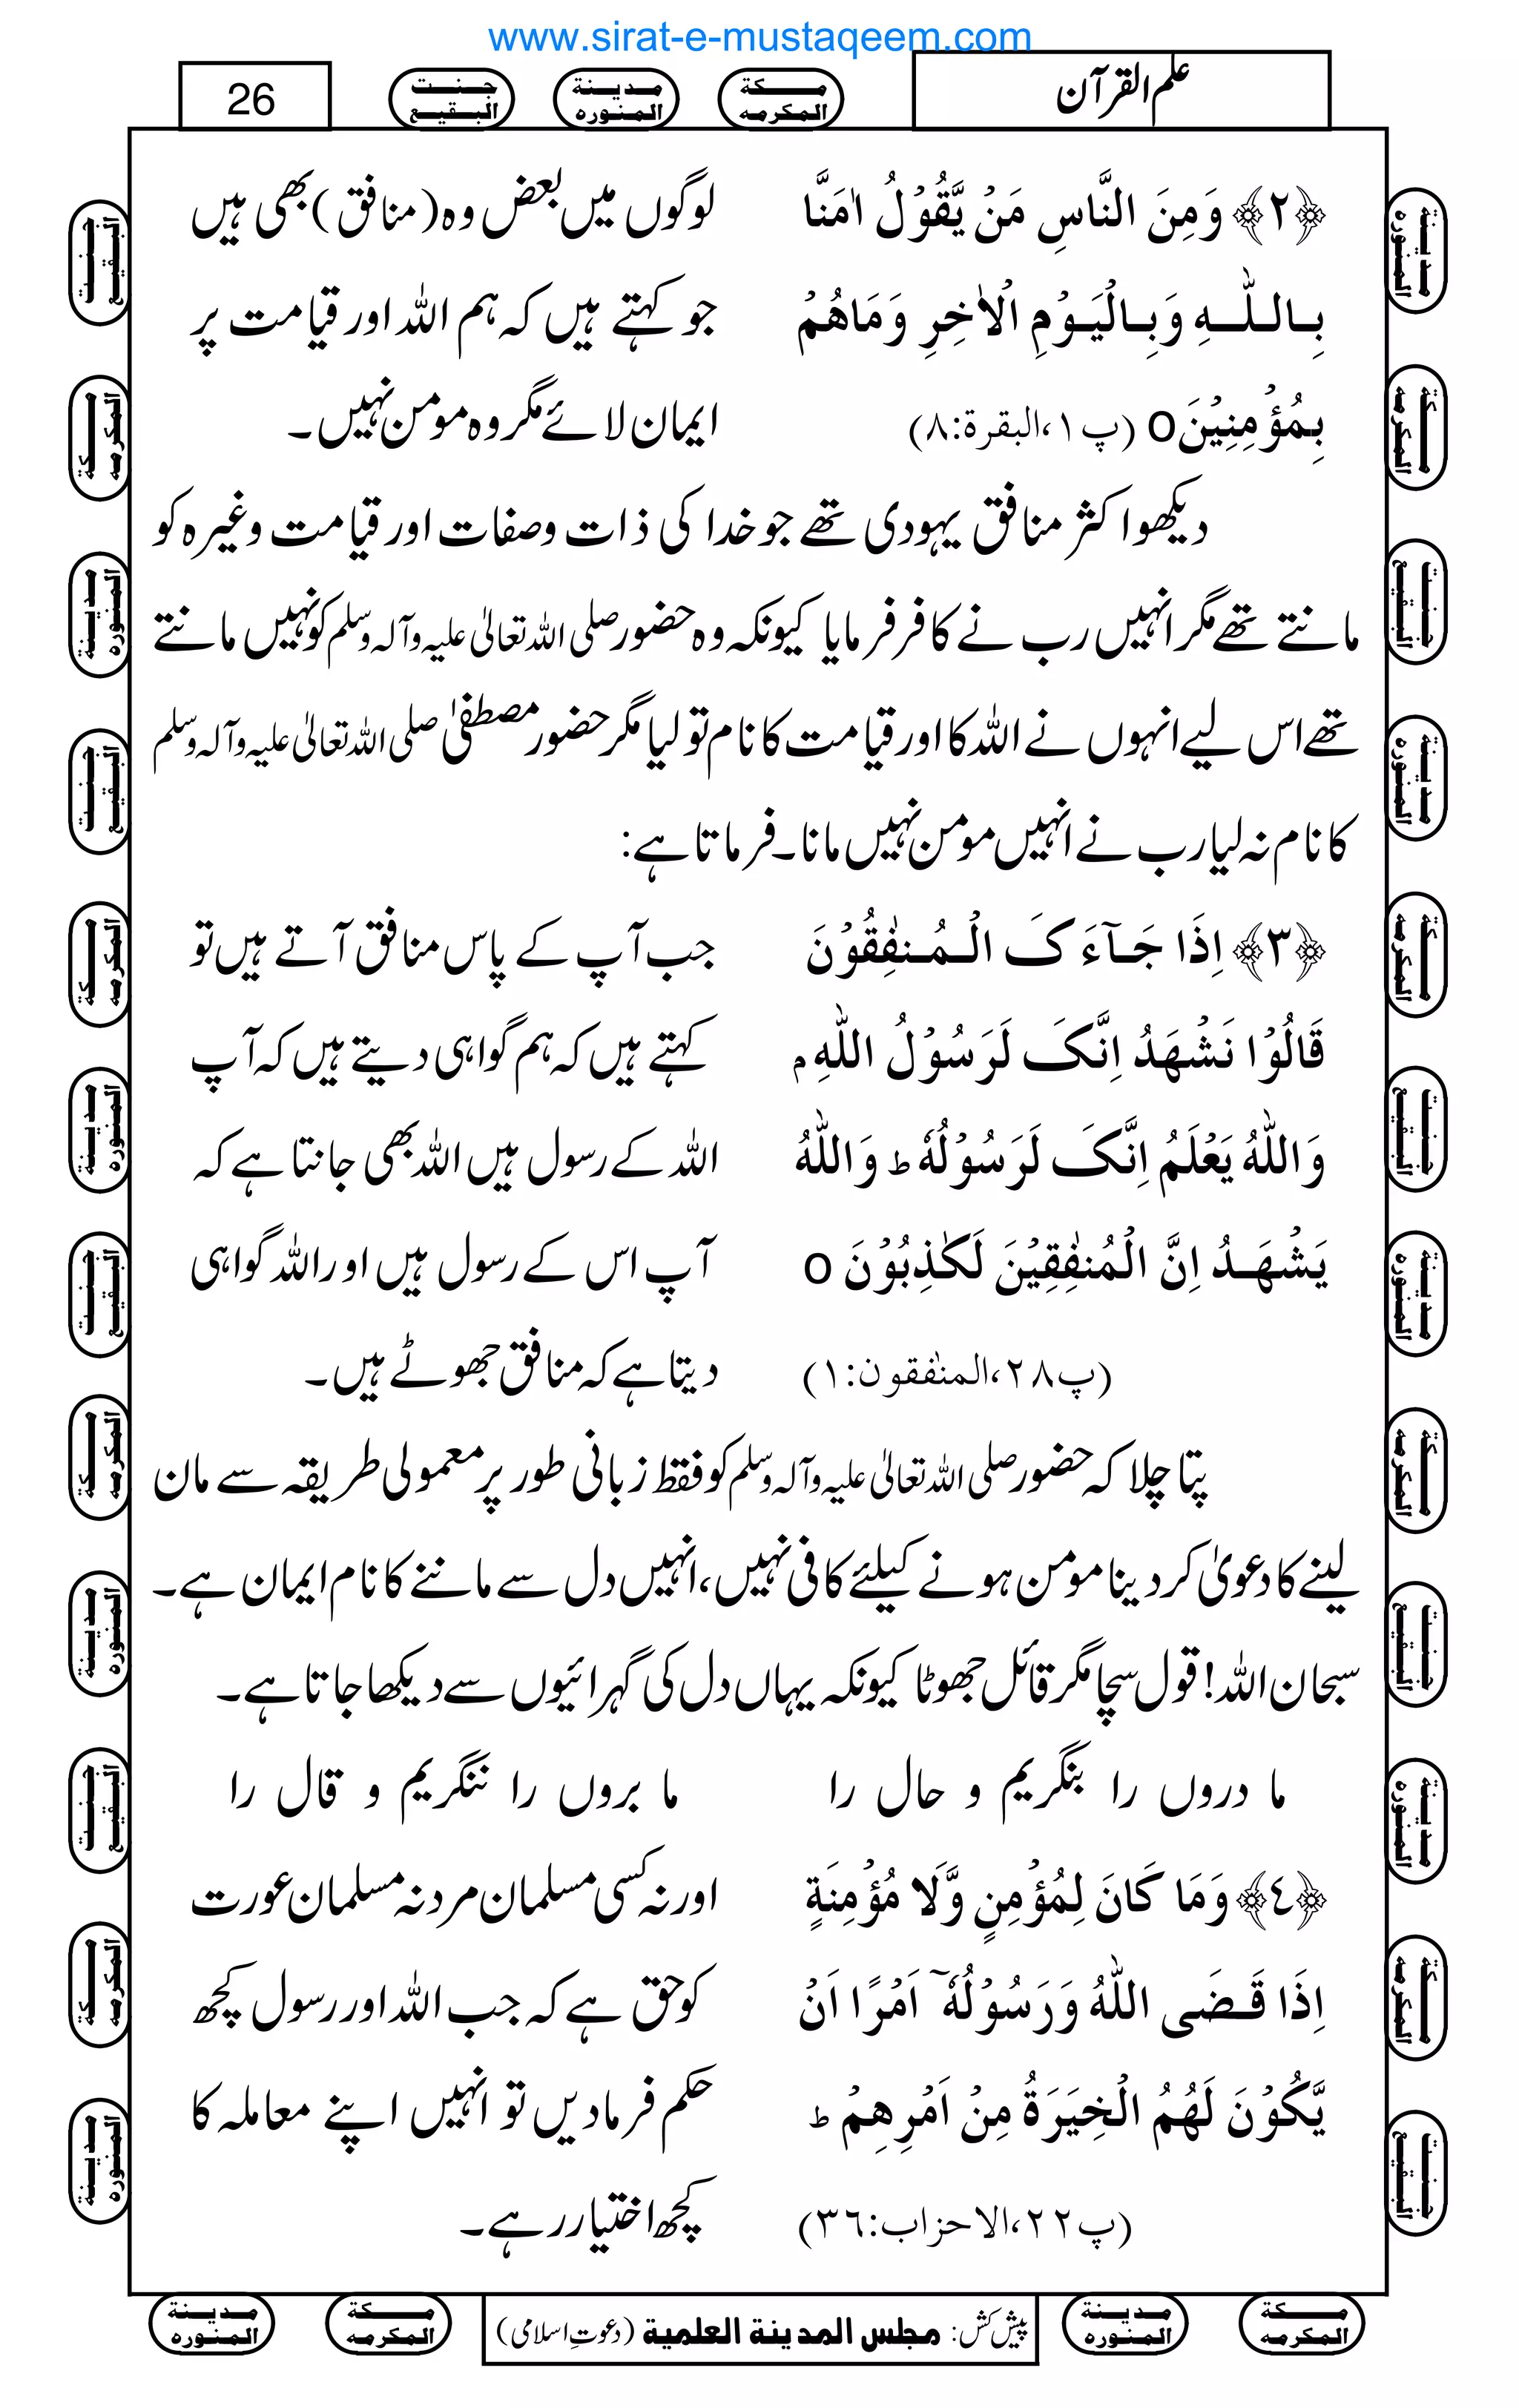 www.sirat-e-mustaqeem.com
علم القرآن
مكة المكرمه
مدينة المنوره
جنت البقيع
26
﴿۲﴾ وَمِنَ النَّاسِ مَنْ يَّقُوْلُ اٰمَنَّا
لوگوں میں بعض وہ (منافق) بھی ہیں
بِاللّٰهِ وَبِالْيَوْمِ الْاٰخِرِ وَمَاهُمْ
جو کہتے ہیں کہ ہم اللہ اور قیامت پر
بِمُؤْمِنِيْنَ o (پ۱،البقرة:۸)
ایمان لائے مگر وہ مومن نہیں۔
دیکھو اکثر منافق یہودی تھے جو خدا کی ذات وصفات اور قیامت وغیرہ کو
مانتے تھے مگر انہیں رب نے کافر فرمایا کیونکہ وہ حضور صلی اللہ تعالیٰ علیہ وآلہ وسلم کو نہیں مانتے
تھے اس لیے انہوں نے اللہ کا اور قیامت کا نام تو لیا مگر حضور مصطفیٰ صلی اللہ تعالیٰ علیہ وآلہ وسلم
کا نام نہ لیا رب نے انہیں مومن نہیں مانا۔ فرماتا ہے:
﴿۳﴾ اِذَا جَآءَ کَ الْمُنٰفِقُوْنَ
جب آپ کے پاس منافق آتے ہیں تو
قَالُوْا نَشْهَدُ اِنَّکَ لَرَسُوْلُ اللّٰهِ م
کہتے ہیں کہ ہم گواہی دیتے ہیں کہ آپ
وَاللّٰهُ يَعْلَمُ اِنَّکَ لَرَسُوْلُهٗ ط وَاللّٰهُ
اللہ کے رسول ہیں اللہ بھی جانتا ہے کہ
يَشْهَدُ اِنَّ الْمُنٰفِقِيْنَ لَکٰذِبُوْنَ o
آپ اس کے رسول ہیں اور اللہ گواہی
(پ۲۸،المنٰفقون:۱)
دیتا ہے کہ منافق جھوٹے ہیں۔
پتا چلا کہ حضور صلی اللہ تعالیٰ علیہ وآلہ وسلم کو فقط زبانی طور پر معمولی طریقہ سے مان
لینے کا دعویٰ کر دینا مومن ہونے کیلئے کافی نہیں، انہیں دل سے ماننے کا نام ایمان ہے۔
سبحان اللہ! قول سچا مگر قائل جھوٹا کیونکہ یہاں دل کی گہرائیوں سے دیکھا جاتا ہے۔
ما دروں را بنگریم و حال را
ما بروں را ننگریم و قال را
﴿٤﴾ وَمَا كَانَ لِمُؤْمِنٍ وَّلَا مُؤْمِنَةٍ
اور نہ کسی مسلمان مرد نہ مسلمان عورت
اِذَا قَضَى اللّٰهُ وَرَسُوْلُهٗٓ اَمْرًا اَنْ
کو حق ہے کہ جب اللہ اور رسول کچھ
يَّكُوْنَ لَهُمُ الْخِيَرَةُ مِنْ اَمْرِهِمْ ط
حکم فرمادیں تو انہیں اپنے معاملہ کا
(پ۲۲،الاحزاب:۳٦)
کچھ اختیار رہے۔
مكة المكرمه
مدينة المنوره
پیش کش: مجلس المدينة العلمية (دعوتِ اسلامی)
مكة المكرمه
مدينة المنوره